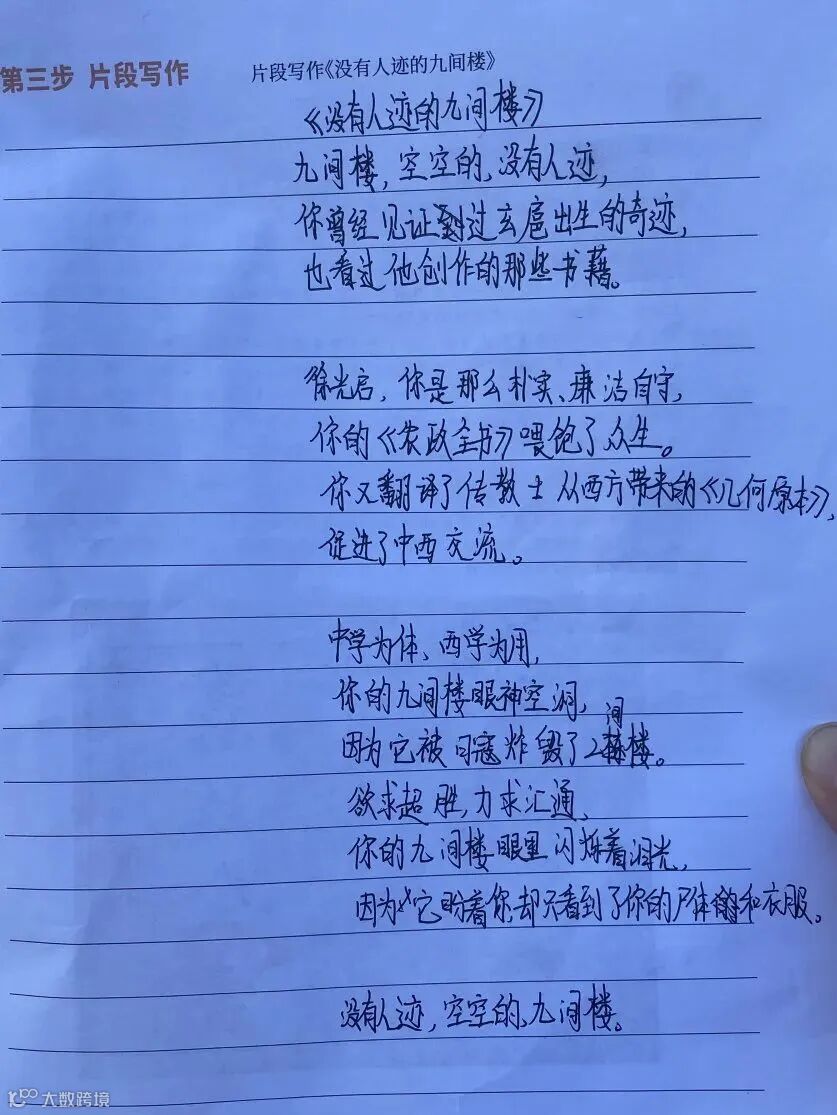 第三步 片段写作
片段写作《没有人迹的九间楼》
《没有人迹的九间楼》
九间楼，空空的，没有人迹，
你曾经见证到过玄扈出生的奇迹，
也看过他创作的那些书藉。
徐光启，你是那么朴实、廉洁自守，
你的《农政全书》喂饱了众生。
你又翻译了传教士从西方带来的《几何原本》，
促进了中西交流。
中学为体、西学为用，
你的九间楼眼神空洞，
因为它被日寇炸毁了2间楼。
欲求超胜，力求汇通，
你的九间楼眼里闪烁着泪光，
因为它盼着你，却只看到了你的尸体和衣服。
没有人迹，空空的，九间楼。
大数跨境